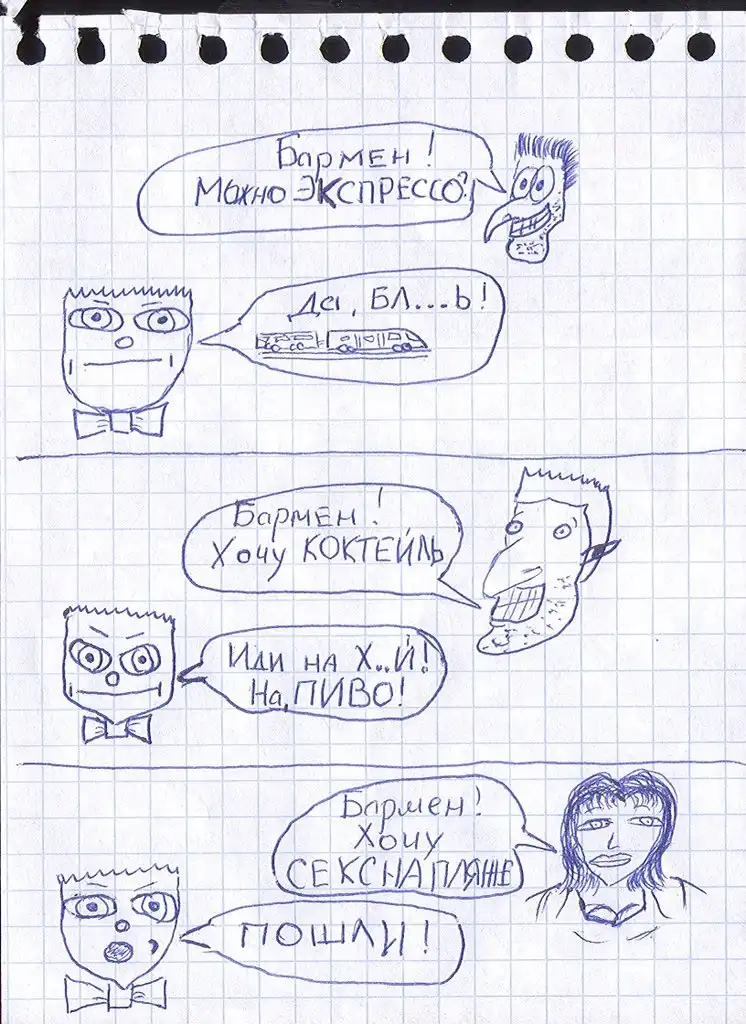 Бармен!
Можно ЭКСПРЕССО?
Да, БЛ...Ь!
Бармен!
Хочу КОКТЕЙЛЬ
Иди на Х..Й!
На, ПИВО!
Бармен!
Хочу
СЕКС НА ПЛЯЖЕ
ПОШЛИ!